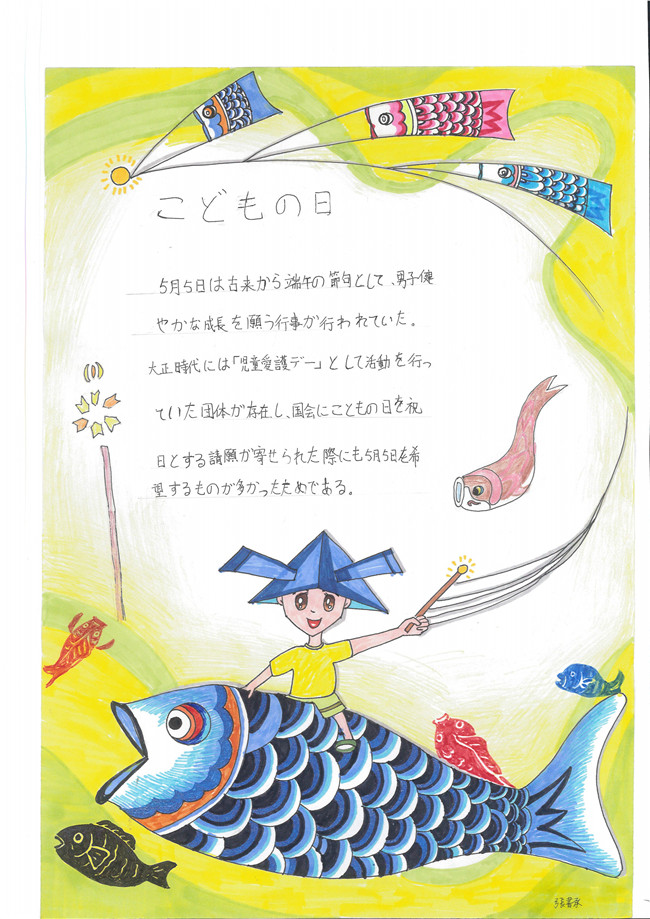 こどもの日
5月5日は古来から端午の節句として、男子健
やかな成長を願う行事が行われていた。
大正時代には「児童愛護デー」として活動を行っ
ていた団体が存在し、国会にこどもの日を祝
日とする請願が寄せられた際にも5月5日を希
望するものが多かったためである。